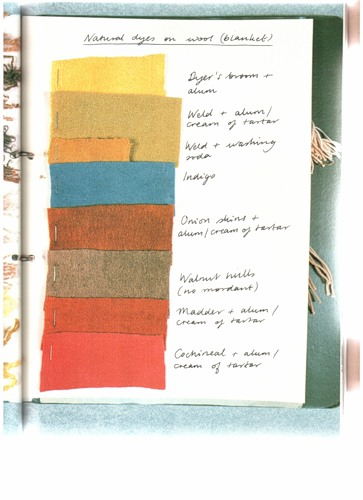 Natural dyes on wool (blanket)
Dyer's broom +
alum
Weld + alum/
cream of tartar
Weld + washing
soda
Indigo
Onion skins +
alum/cream of tartar
Walnut hulls
(no mordant)
Madder + alum/
cream of tartar
Cochineal + alum/
cream of tartar